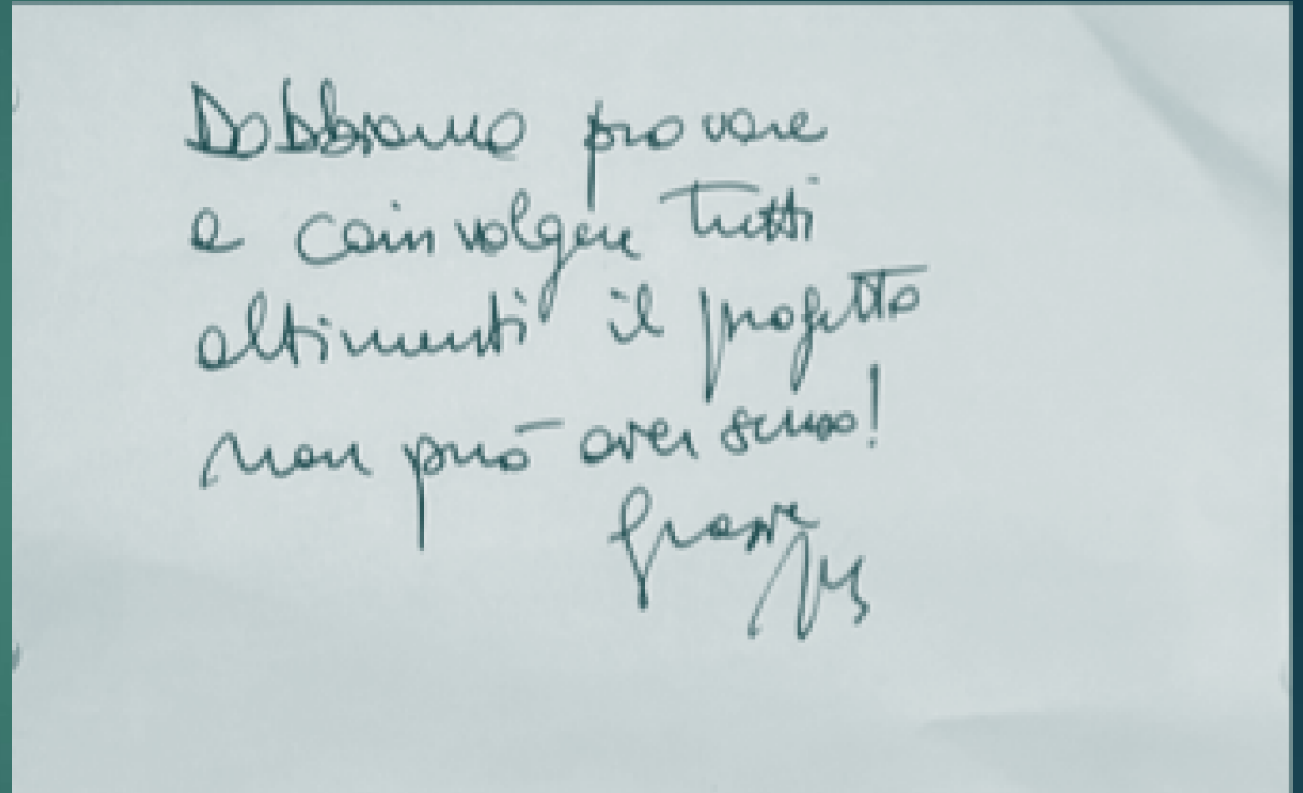 Dobbiamo provare
a coinvolgere Tutti
altrimenti il progetto
non può aver senso!
Grazie